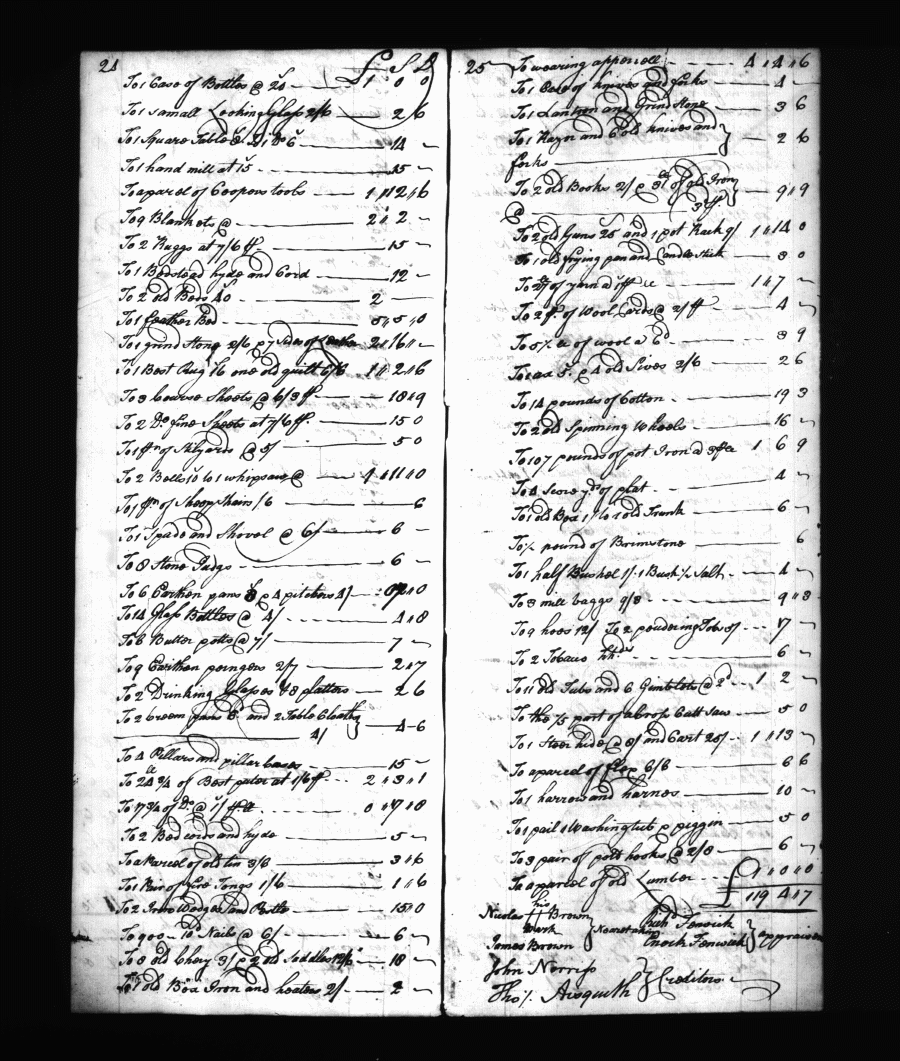 24 £ S D
To 1 Case of Bottles @ 20 1 0 0
To 1 small Looking Glass 2/6 2 6
To 1 Square Table 14 —
To 1 hand mill at 15 — 15 —
To aparcel of Coopers tools 1 " 12 " 6
To 9 Blankets @ 2 " 2 —
To 2 Ruggs at 7/6 15 —
To 1 Bedstead hyde and Cord 12 —
To 2 old Beds 40 2 —
To 1 feather Bed 5 " 5 " 0
To 1 grind Stong 2/6 & 7 Sides of Leather 2 " 16 " —
To 1 Best Rug 16 one old quilt 6/6 1 " 2 " 6
To 3 Course Sheets @ 6/3 18 " 9
To 2 Do fine Sheets at 7/6 15 0
To 1 of Stilyards @ 5/ 5 0
To 2 Bells 10 to 1 whipsaw @ 1 " 11 " 0
To 1 of Sheep Shears /6 6
To 1 Spade and Shovel @ 6/ 6 —
To 8 Stone Judgs 6 —
To 6 Earthen pans & 4 pitchers 4/
To 14 Glass Bottles @ 4/ 4 " 8
To 6 Butter potts @ 7/ 7 —
To 9 Earthen porngers 2/7 2 " 7
To 2 Drinking Glases & 8 platters 2 6
To 2 creem pans and 2 Table Cloaths
4/ } 4 - 6
To 4 Pillars and pillar bases 15 —
To 24 3/4 of Best puter at 1/6 2 " 3 " 1
To 17 3/4 of Do @ 1/ 0 " 17 " 8
To 2 Bed cords and hyde 5 —
To a Parcel of old tin 3/6 3 " 6
To 1 Pair of Fire Tongs 1/6 1 " 6
To 2 Iron Wedges and Pestle 15 " 0
To 900 - 10 Nails @ 6/ 6 —
To 8 old Chery 3/ & 2 old Saddles 18 —
To 1 old Box Iron and heaters 2/ 2 —
25 To wearing apperell 4 " 4 " 6
To 1 Case of knives and forks 4 —
To 1 Lantern and Grindstone 3 6
To 1 Razn and 6 old knives and } 2 6
forks
To 2 old Books 2/ & 31 of old Iron } 9 " 9
@ 3
To 2 old Guns 25 and 1 pot Rack 9/ 1 " 14 0
To 1 old frying pan and Candlestick 3 0
To 27 of yarn 1 " 7 —
To 2 pr of Wool Cards @ 2/ 4 —
To 5½ of wool a 6d 3 9
To 1 ax 5 & 4 old Sives 2/6 2 6
To 14 pounds of Cotton 19 3
To 2 old Spinning Wheels 16 —
To 107 pounds of pot Iron a 3 1 6 9
To 4 Score yds of plat 4 —
To 1 old Box 1/ to 1 old Trunk 6 —
To ½ pound of Brimstone 6
To 1 half Bushel 1/ 1 Bush½ Salt 4 —
To 3 mill baggs 9/3 9 " 3
To 9 hoes 12/ To 2 poudering Tobs 5/ 17 —
To 2 Tobaco hhds 6 —
To 11 old Tubs and 6 Gimblets @ 2d 1 2 —
To the ⅓ part of a Crop Cutt Saw 5 0
To 1 Steer hide @ 8/ and Cart 25/ 1 " 13 —
To aparcel of flax 6/6 6 6
To 1 harrow and harnes 10 —
To 1 pail 1 Washing tub & piggin 5 0
To 3 pair of pott hooks @ 2/8 6 —
To a parcel of old Lumber 1 " 0 " 0
£ 119 4 " 7
Nicolas his + mark Brown } Nearest Rich'd Fenwick } appraisers
James Brown Enock Fenwick
John Norris } Creditors
Thos. Aisquith